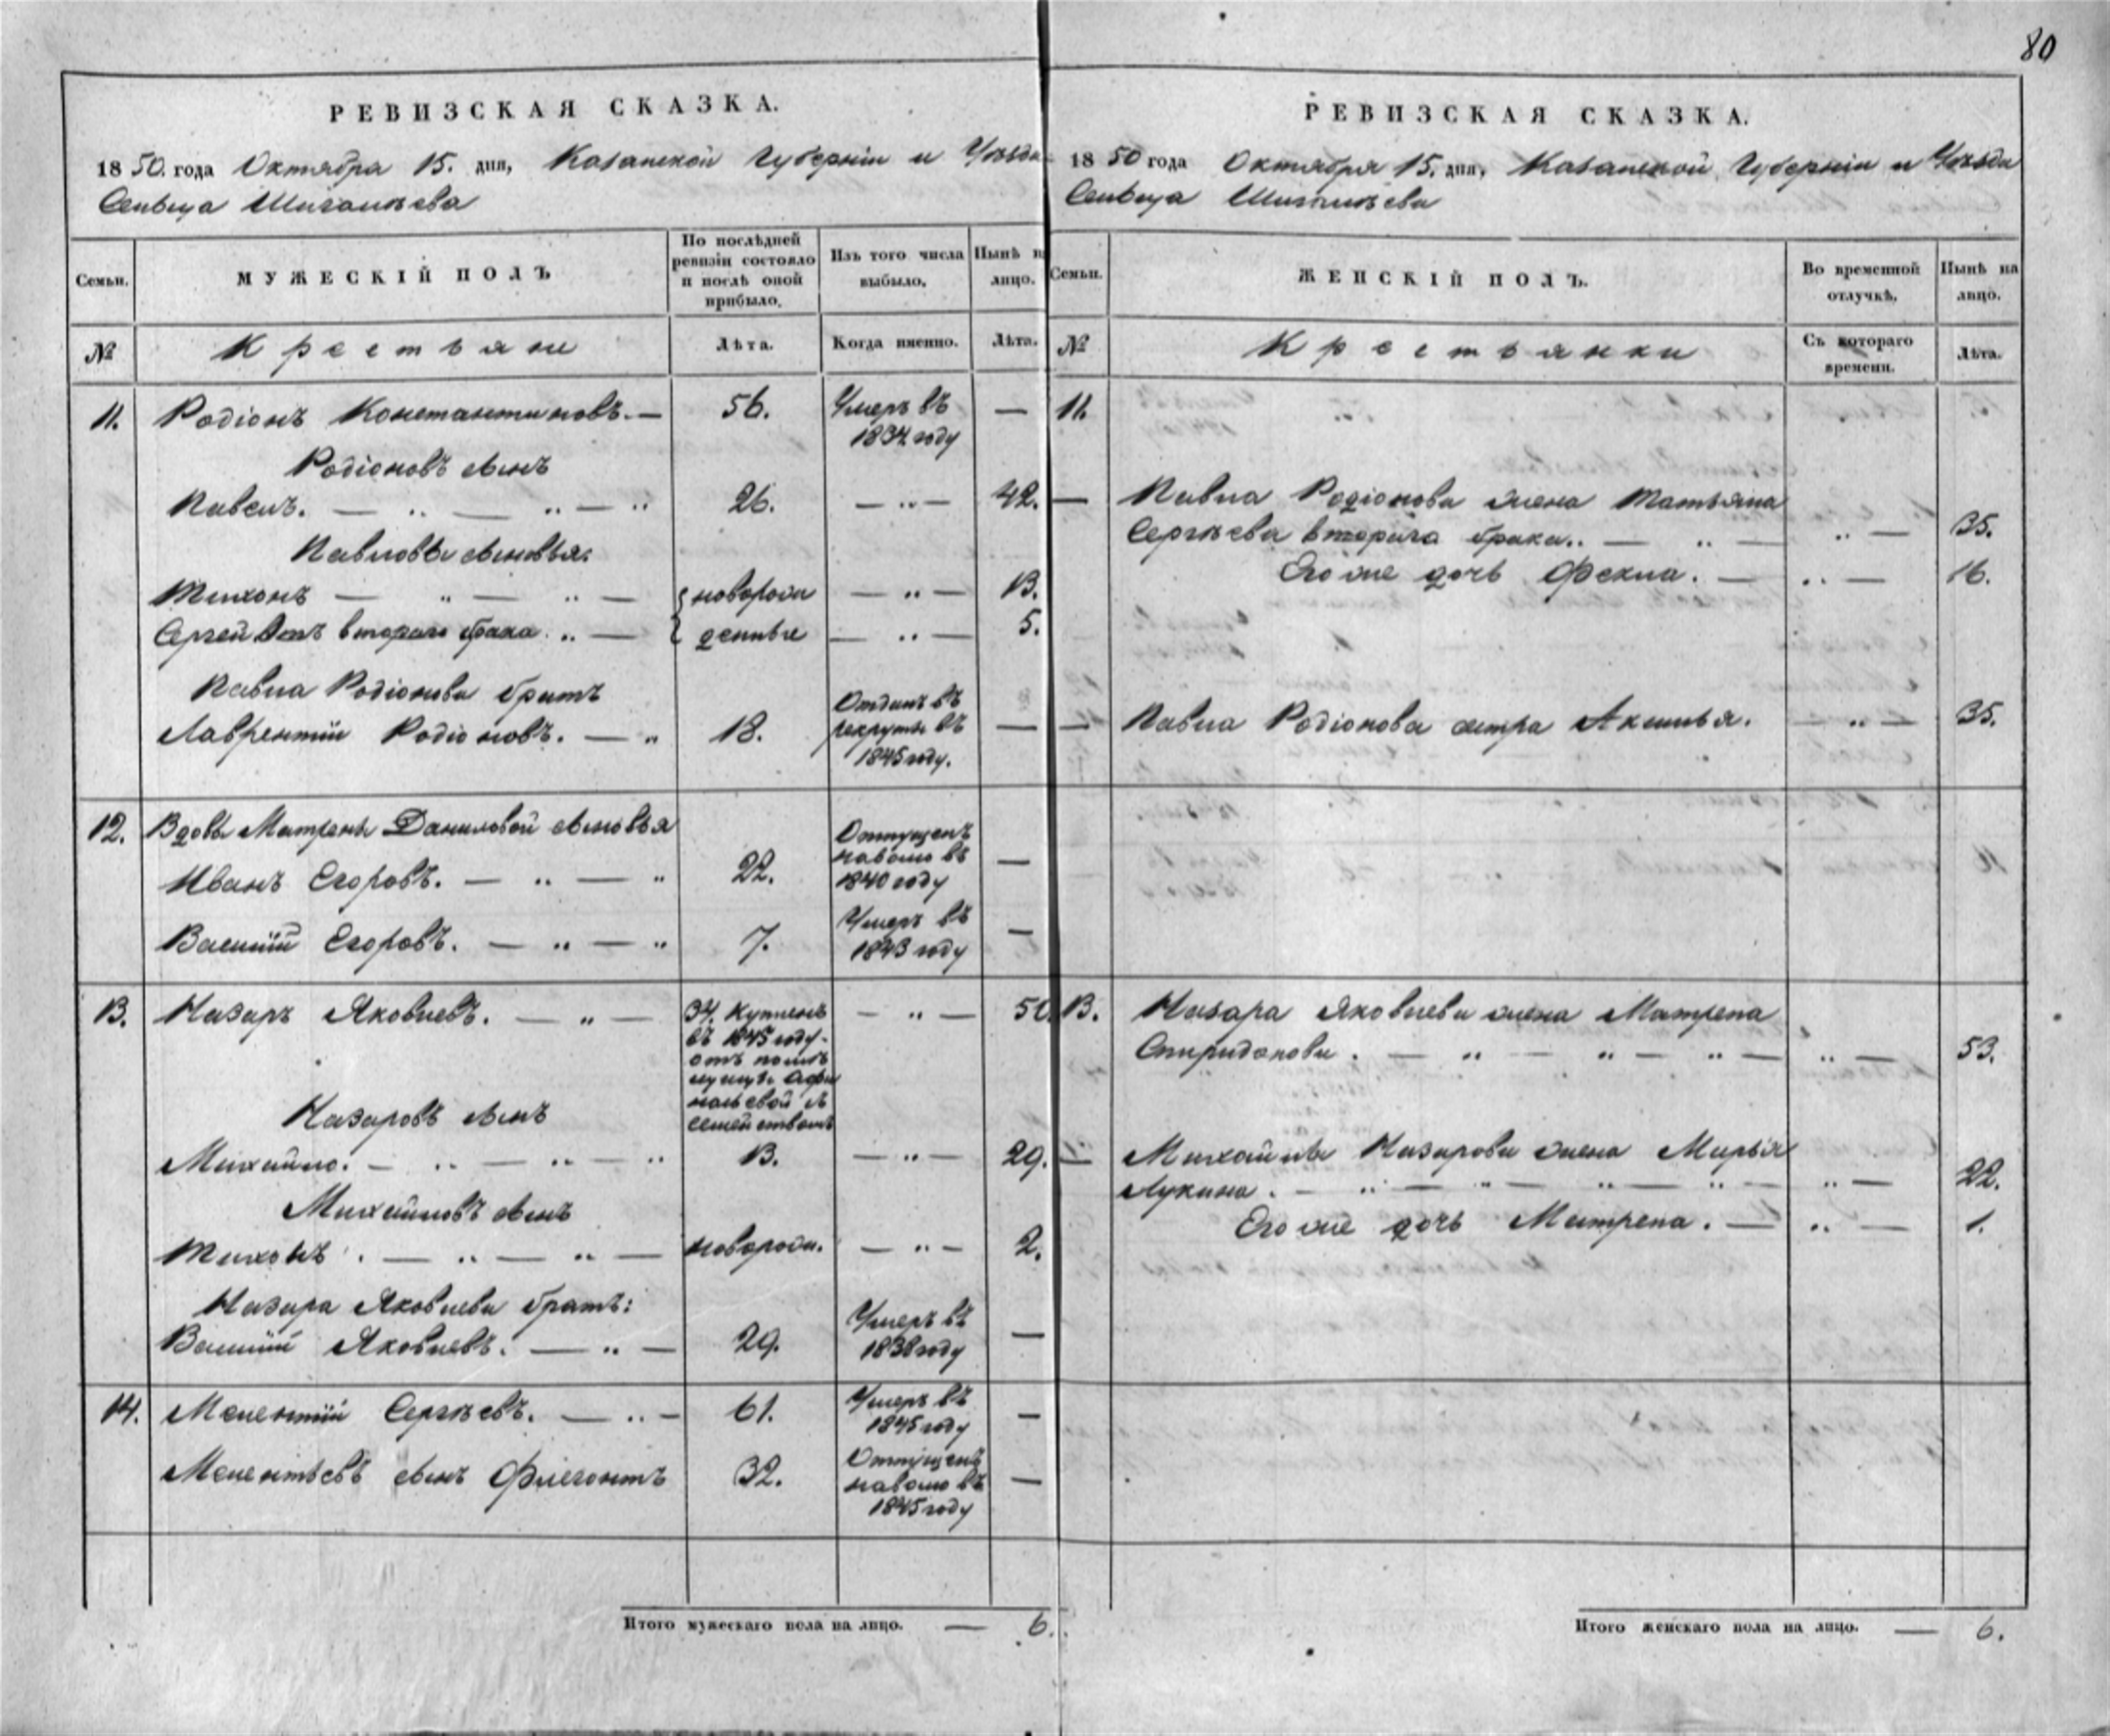 80
РЕВИЗСКАЯ СКАЗКА.
1850. года Октября 15. дня, Казанской Губерніи и Уѣзда
Сельца Шигалѣева
Семьи.
МУЖЕСКІЙ ПОЛЪ
По послѣдней ревизіи состояло и послѣ оной прибыло.
Изъ того числа выбыло.
Нынѣ на лицо.
№
Крестьяне
Лѣта.
Когда именно.
Лѣта.
11. Родіонъ Константиновъ. — 56. Умеръ въ 1834 году —
Родіоновъ сынъ
Павелъ. — 26. — 42.
Павловы сыновья.
Тихонъ — новорож — 13.
Сергей отъ втораго брака. — денные — 5.
Павла Родіонова братъ
Лаврентій Родіоновъ. — 18. Отданъ въ рекруты въ 1845 году. —
12. Вдовы Матрены Даниловой сыновья
Иванъ Егоровъ. — 22. Отпущенъ наволю въ 1840 году —
Василій Егоровъ. — 7. Умеръ въ 1843 году —
13. Назаръ Яковлевъ. — 34. Купленъ въ 1845 году отъ помѣ семействомъ — 50.
Назаровъ сынъ
Михайло. — 13. — 29.
Михайловъ сынъ
Тихонъ. — новорож. — 2.
Назара Яковлева братъ:
Василій Яковлевъ. — 29. Умеръ въ 1838 году —
14. Мелентій Сергѣевъ. — 61. Умеръ въ 1845 году —
Мелентьевъ сынъ Флегонтъ 32. Отпущенъ наволю въ 1845 году —
Итого мужескаго пола на лицо. — 6.
РЕВИЗСКАЯ СКАЗКА.
1850 года Октября 15. дня, Казанской Губерніи и Уѣзда
Сельца Шигалѣева
Семьи.
ЖЕНСКІЙ ПОЛЪ.
Во временной отлучкѣ.
Нынѣ на лицо.
№
Крестьянки
Съ котораго времени.
Лѣта.
11.
— Павла Родіонова жена Татьяна
Сергѣева втораго брака.. — 35.
Его же дочь Фекла. — 16.
— Павла Родіонова сестра Аксинья. — 35.
13. Назара Яковлева жена Матрена
Спиридонова. — 53.
— Михайлы Назарова жена Марья
Лукина. — 22.
Его же дочь Матрена. — 1.
Итого женскаго пола на лицо. — 6.